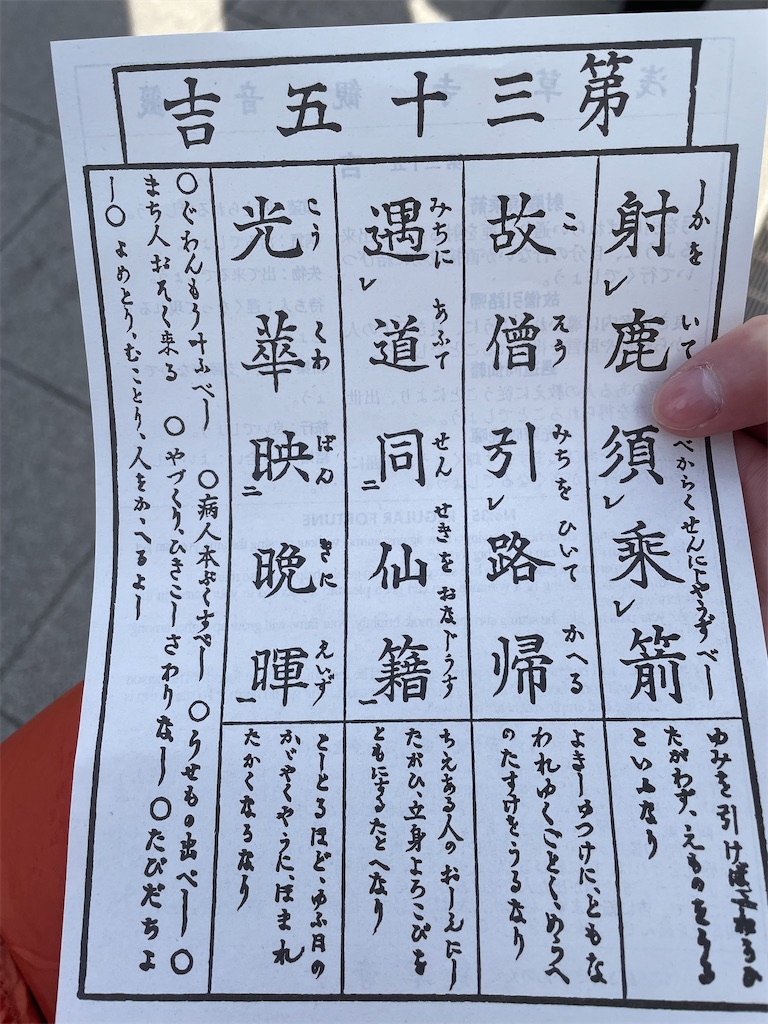 第三十五吉
しかを いて べからく せんに じやうずべし
射レ鹿須レ乗レ箭
ゆみを引けば ねらひ
たがわず、えものをうる
といふなり
こ そう みちを ひいて かへる
故僧引レ路帰
よきしゆつけに、ともな
われゆくごとく、めうへ
のたすけをうるなり
みちに あふて せん せきを おなじうす
遇レ道同二仙籍一
ちえある人のおしえにし
たがひ、立身よろこびを
ともにするたとへなり
こう くわ ばん きに えいず
光華映二晩暉一
としとるほど、ゆふ月の
かゞやくやうに、ほまれ
たかくなるなり
○ぐわんもう叶ふべし ○病人本ぷくすべし ○うせもの出べし ○
まち人おそく来る ○やづくり、ひきこしさわりなし ○たびだちよ
し○よめとり、むことり、人をかゝへるよし